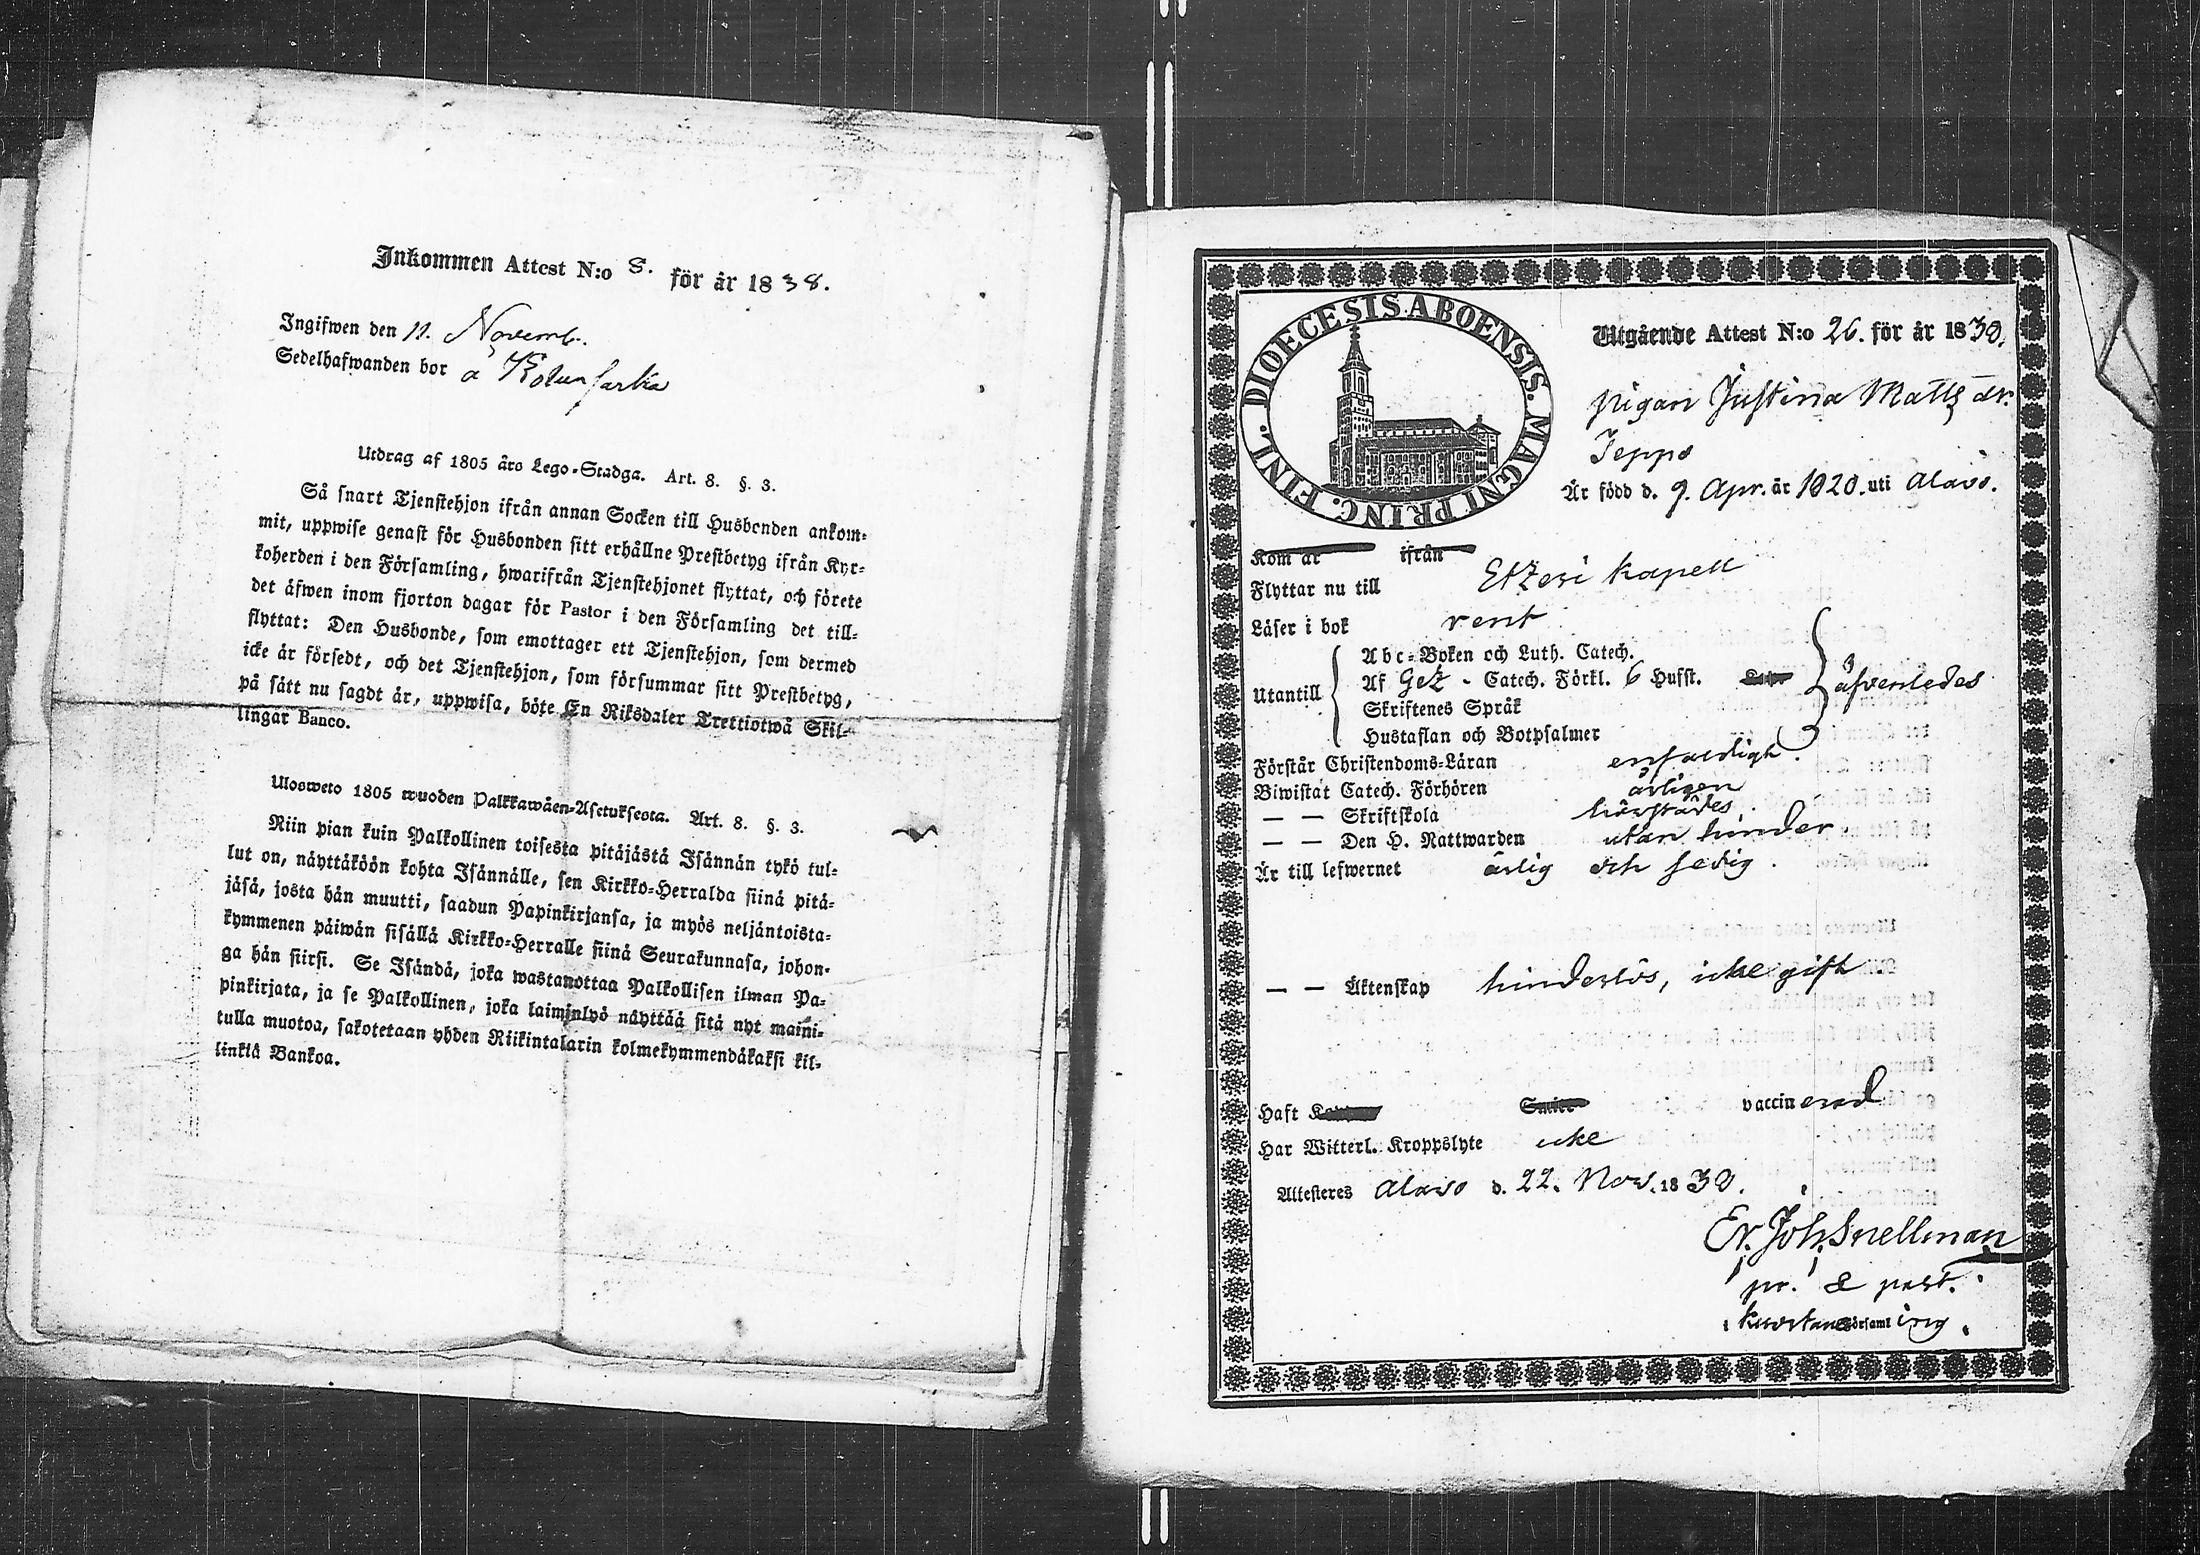 Inkommen Attest N:o 8. för år 1838.
Ingifwen den 11. Novemb.
Sedelhafwanden bor å
Utdrag af 1805 års Lego-Stadga. Art. 8. §. 3.
Så snart Tjenstehjon ifrån annan Socken till Husbonden ankom-
mit, uppwise genast för Husbonden sitt erhållne Prestbetyg ifrån Kyr-
koherden i den Församling, hwarifrån Tjenstehjonet flyttat, och förete
det äfwen inom fjorton dagar för Pastor i den Församling det till-
flyttat: Den Husbonde, som emottager ett Tjenstehjon, som dermed
icke är försedt, och det Tjenstehjon, som försummar sitt Prestbetyg,
på sätt nu sagdt är, uppwisa, böte En Riksdaler Trettiotwå Skil-
lingar Banco.
Ulosweto 1805 wuoden Palkkawäen-Asetuksesta. Art. 8. §. 3.
Niin pian kuin Palkollinen toisesta pitäjästä Isännän tykö tul-
lut on, näyttäköön kohta Isännälle, sen Kirkko-Herralda siinä pitä-
jäsä, josta hän muutti, saadun Papinkirjansa, ja myös neljäntoista-
kymmenen päiwän sisällä Kirkko-Herralle siinä Seurakunnasa, johon-
ga hän siirsi. Se Isändä, joka wastanottaa Palkollisen ilman Pa-
pinkirjata, ja se Palkollinen, joka laiminlyö näyttää sitä nyt maini-
tulla muotoa, sakotetaan yhden Riikintalarin kolmekymmendäkaksi kil-
linkiä Bankoa.
DIOECESIS ABOENSIS. MAGNI PRINC. FINL.
Utgående Attest N:o 26. för år 1838.
pigan Justina Matts dr.
Jeppo
Är född d. 9. Apr. år 1820. uti Alavo.
Kom år ifrån
Flyttar nu till Etzeri kapell
Läser i bok rent
Utantill
Abc-Boken och Luth. Catech.
Af Getz - Catech. Förkl. 6 Hufst.
Skriftenes Språk
Hustaflan och Botpsalmer
äfvenledes
Förstår Christendoms-Läran enfaldigh.
Biwistat Catech. Förhören årligen
— — Skriftskola härstädes
— — Den H. Nattwarden utan hinder
Är till lefwernet ärlig och sedig.
— — Äktenskap hinderlös, icke gift
Haft vaccinerad
Har Witterl. Kroppslyte icke
Attesteres Alavo d. 22. Nov. 1838.
Er. Joh. Snellman
pr. & past.
Kuortane församling.